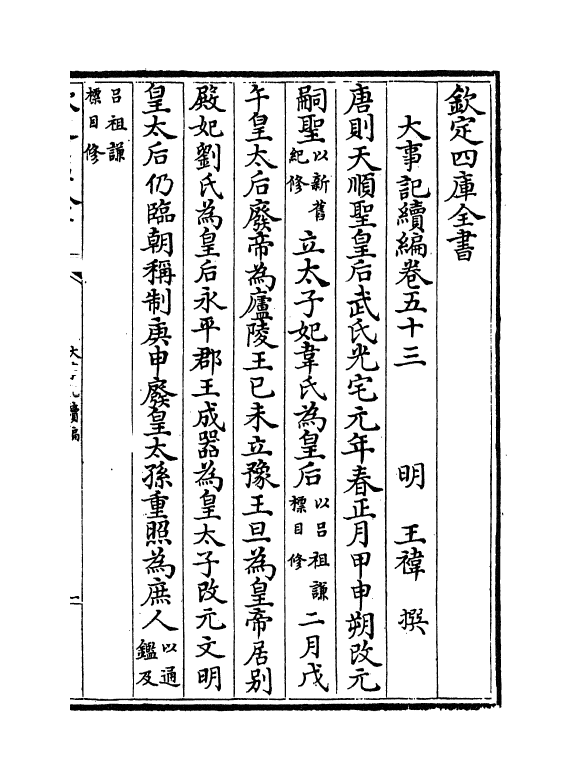 欽定四庫全書
大事記續編卷五十三　明　王禕　撰
唐則天順聖皇后武氏光宅元年春正月甲申朔改元
嗣聖以新舊紀修立太子妃韋氏為皇后以呂祖謙標目修二月戊
午皇太后廢帝為廬陵王己未立豫王旦為皇帝居别
殿妃劉氏為皇后永平郡王成器為皇太子改元文明
皇太后仍臨朝稱制庚申廢皇太孫重照為庶人以通鑑及
呂祖謙標目修